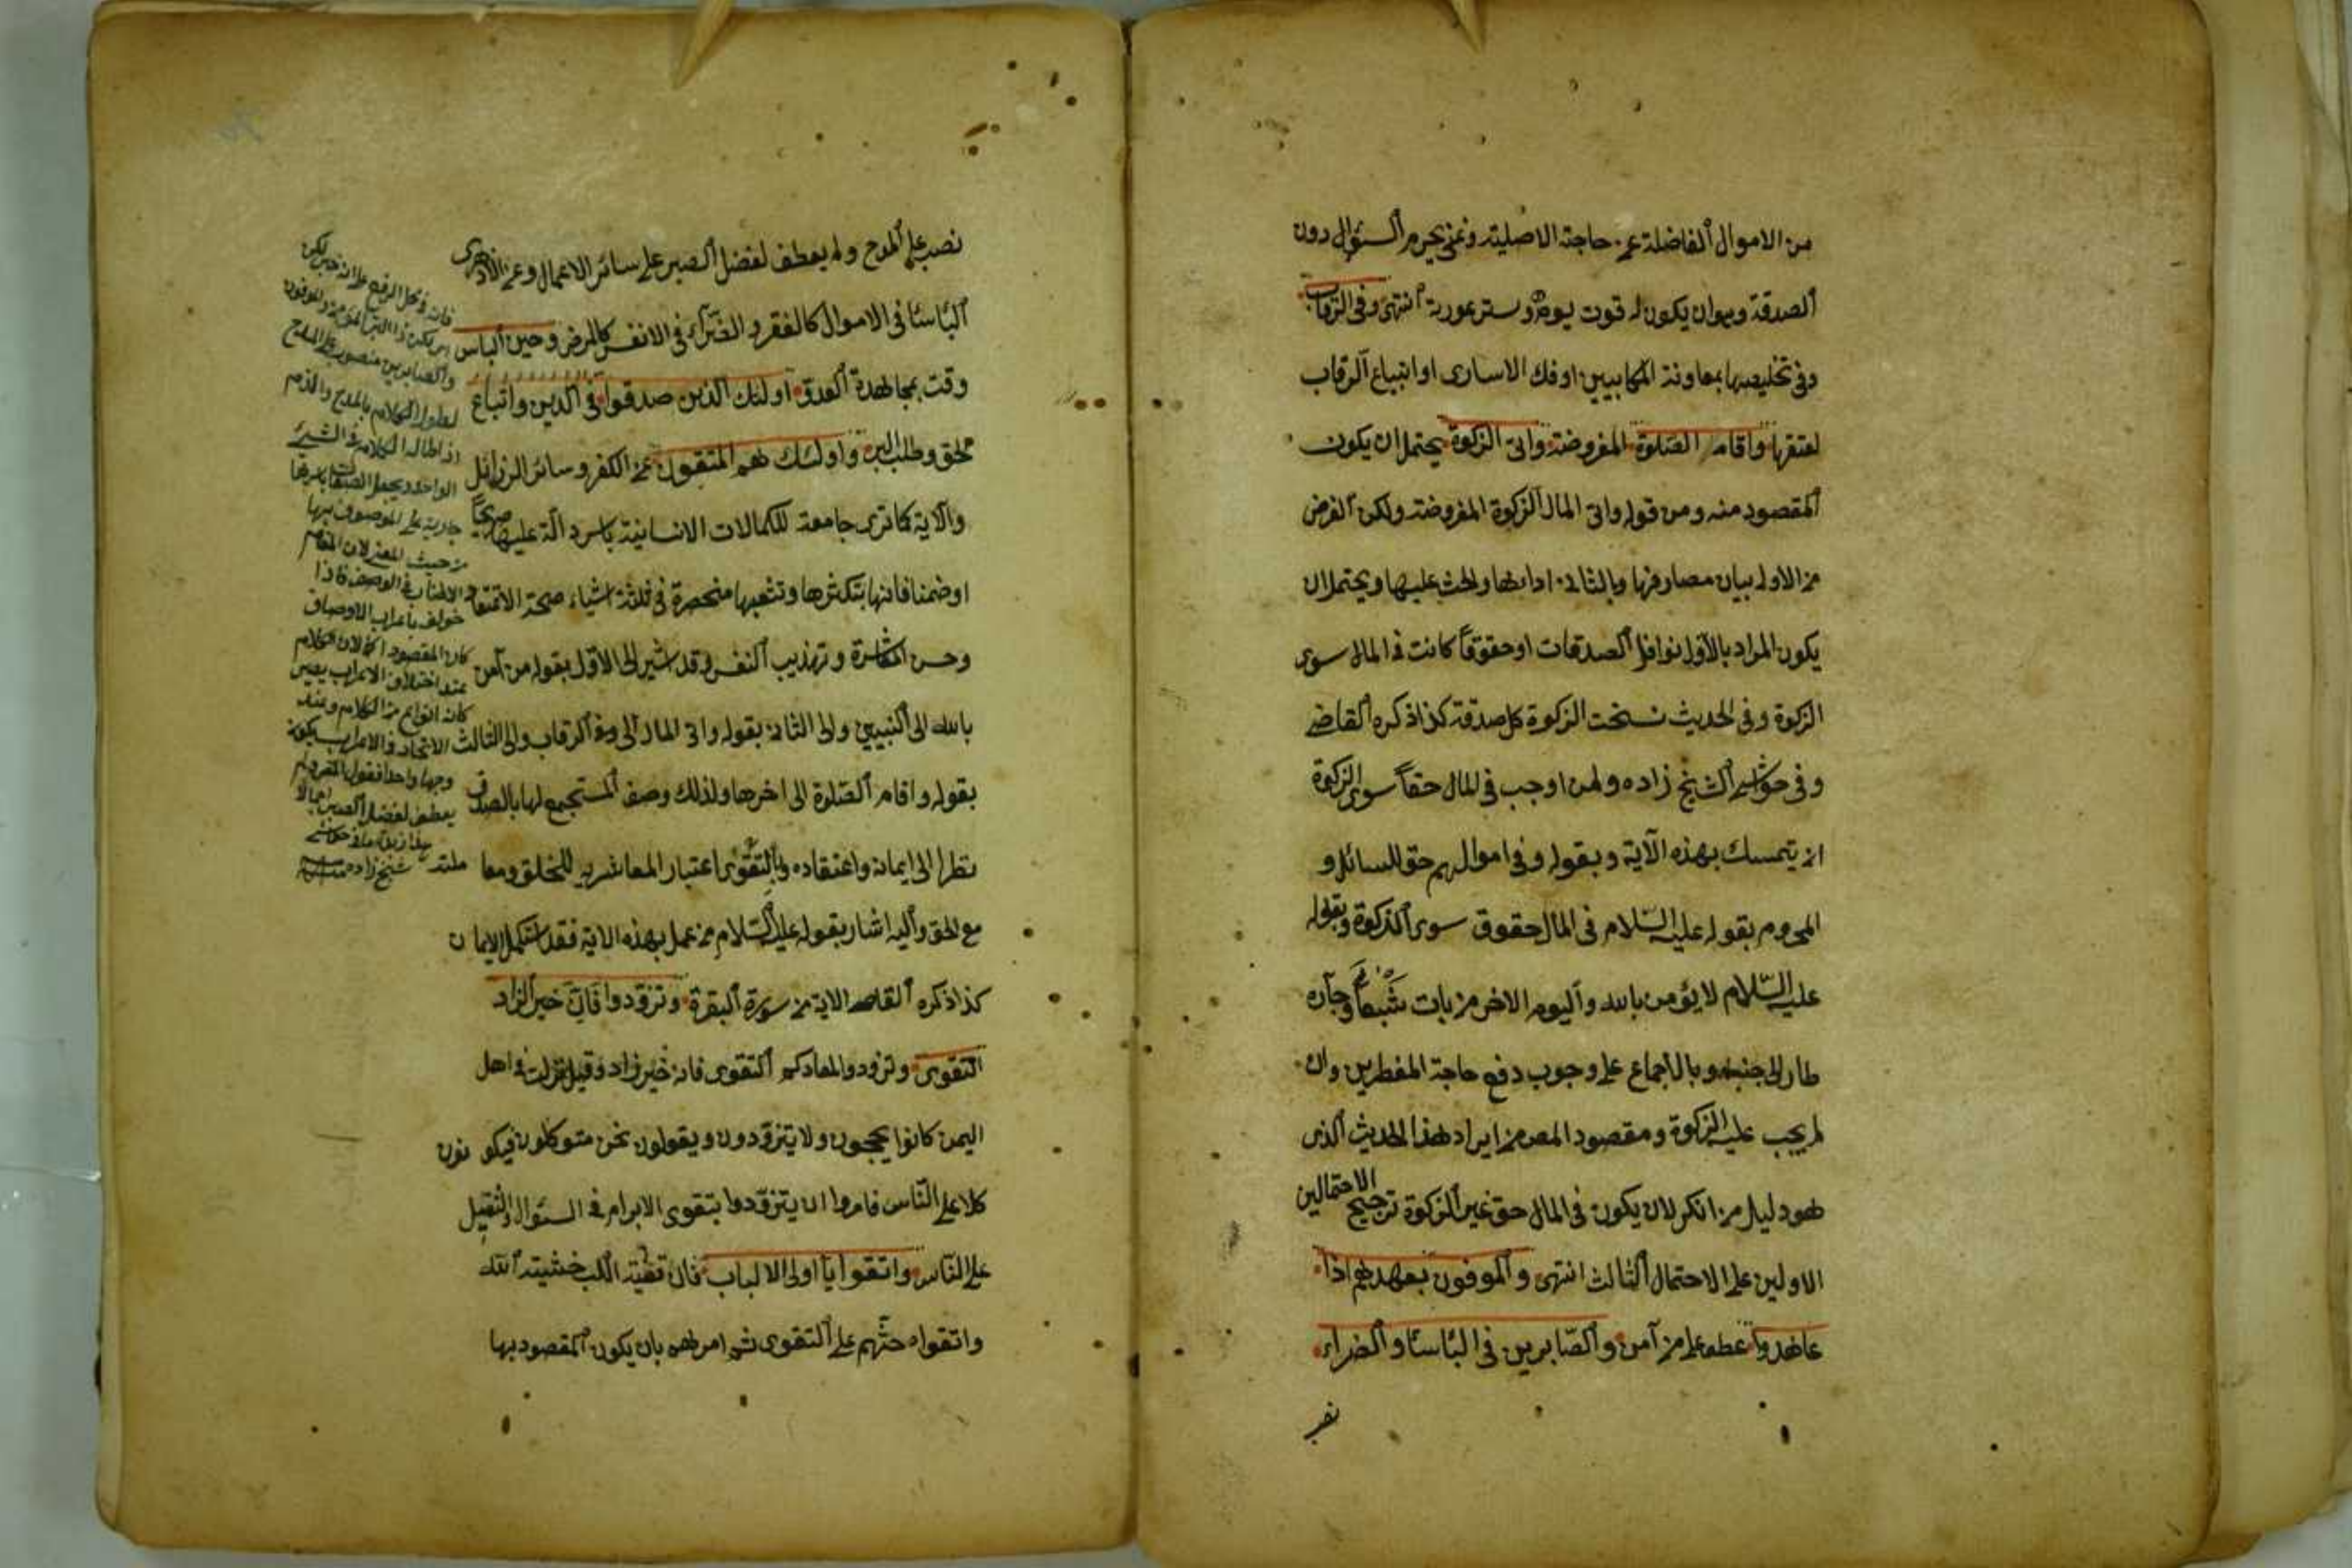 من الاموال الفاضلة عن حاجته الاصلية وغنى يحرم السؤال دون
الصدقة وهو ان يكون له قوت يومه وستر عورته انتهى وفى الرقاب
وفى تخليصها بمعاونة المكاتبين اوفك الاسارى او ابتياع الرقاب
لعتقها واقام الصلوة المفروضة واتى الزكوة يحتمل ان يكون
المقصود منه ومن قوله واتى المال الزكوة المفروضة ولكن الغرض
من الاول بيان مصارفها وبالثانى ادائها والحث عليها ويحتمل ان
يكون المراد بالاول نوافل الصدقات او حقوقاً كانت فى المال سوى
الزكوة وفى الحديث نسخت الزكوة كل صدقة كذا ذكره القاضى
وفى حواشى الشيخ زاده ولمن اوجب فى المال حقاً سوى الزكوة
ان يتمسك بهذه الآية وبقوله وفى اموالهم حق للسائل و
المحروم بقوله عليه السلام فى المال حقوق سوى الزكوة وبقوله
عليه السّلام لا يؤمن بالله واليوم الاخر من بات شَبْعاً وجاره
طار الى جنبه وبالاجماع على وجوب دفع حاجة المضطرين وان
لم يجب عليه الزكوة ومقصود المص من ايراد هذا الحديث الذى
هو دليل من انكر لان يكون فى المال حق غير الزكوة ترجيح الاحتمالين
الاولين على الاحتمال الثالث انتهى والموفون بعهدهم اذا
عاهدوا عطف على من آمن والصّابرين فى البأسا والضراء
نصب
نصب على المدح ولم يعطف لفضل الصبر على سائر الاعمال وعن الازهرى
البأسا فى الاموال كالفقر والضرّاء فى الانفس كالمرض وحين البأس
وقت مجاهدة العدو اولئك الذين صدقوا فى الدين واتباع
الحق وطلب البر واولئك هم المتقون عن الكفر وسائر الرزائل
والآية كما ترى جامعة للكمالات الانسانية باسرد الّة عليها صريحاً
او ضمنا فانها بتكثرها وتشعبها منحصرة فى ثلثة اشياء صحة الاعتقاد
وحسن المعاشرة وتهذيب النفس وقد اشير الى الاوّل بقوله من آمن
بالله الى النبيين والى الثانى بقوله واتى المال الى وفى الرقاب والى الثالث
بقوله واقام الصّلوة الى اخرها ولذلك وصف المستجمع لها بالصدق
نظرا الى ايمانه واعتقاده وبالتقوى اعتبار المعاشرته للخلق ومعا ملته
مع الحق واليه اشار بقوله عليه السّلام من عمل بهذه الاية فقد استكمل الايمان
كذا ذكره القاضى الاية من سورة البقرة وتزودوا فَاِنَّ خير الزاد
التقوى وتزودوا لمعادكم التقوى فانه خير زاد وقيل نزلت فى اهل
اليمن كانوا يحجون ولا يتزوّدون ويقولون نحن متوكلون فيكونون
كلا على النّاس فامروا ان يتزوّدوا بتقوى الابرام فى السؤال والتثقيل
على النّاس واتقون يا اولى الالباب فان قضيّة اللب خشية الله
واتقواه حثّهم على التقوى ثم امرهم بان يكون المقصود بها
فانه فى محل الرفع على انه خبر لكن
والصابرين منصوب على المدح
لطول الكلام بالمدح والذم
اذا طال الكلام فى الشئ
الواحد ويجعل الصفات
جارية على الموصوف بها
من حيث المعنى لان المقام
الاطناب فى الوصف فاذا
خولف باعراب الاوصاف
كان المقصود اكمل لان الكلام
عند اختلاف الاعراب يصير
كانه انواع من الكلام وعند
الاتحاد فى الاعراب يكون
وجها واحدا فقول المص ولم
يعطف لفضل الصبر
شيخ زاده